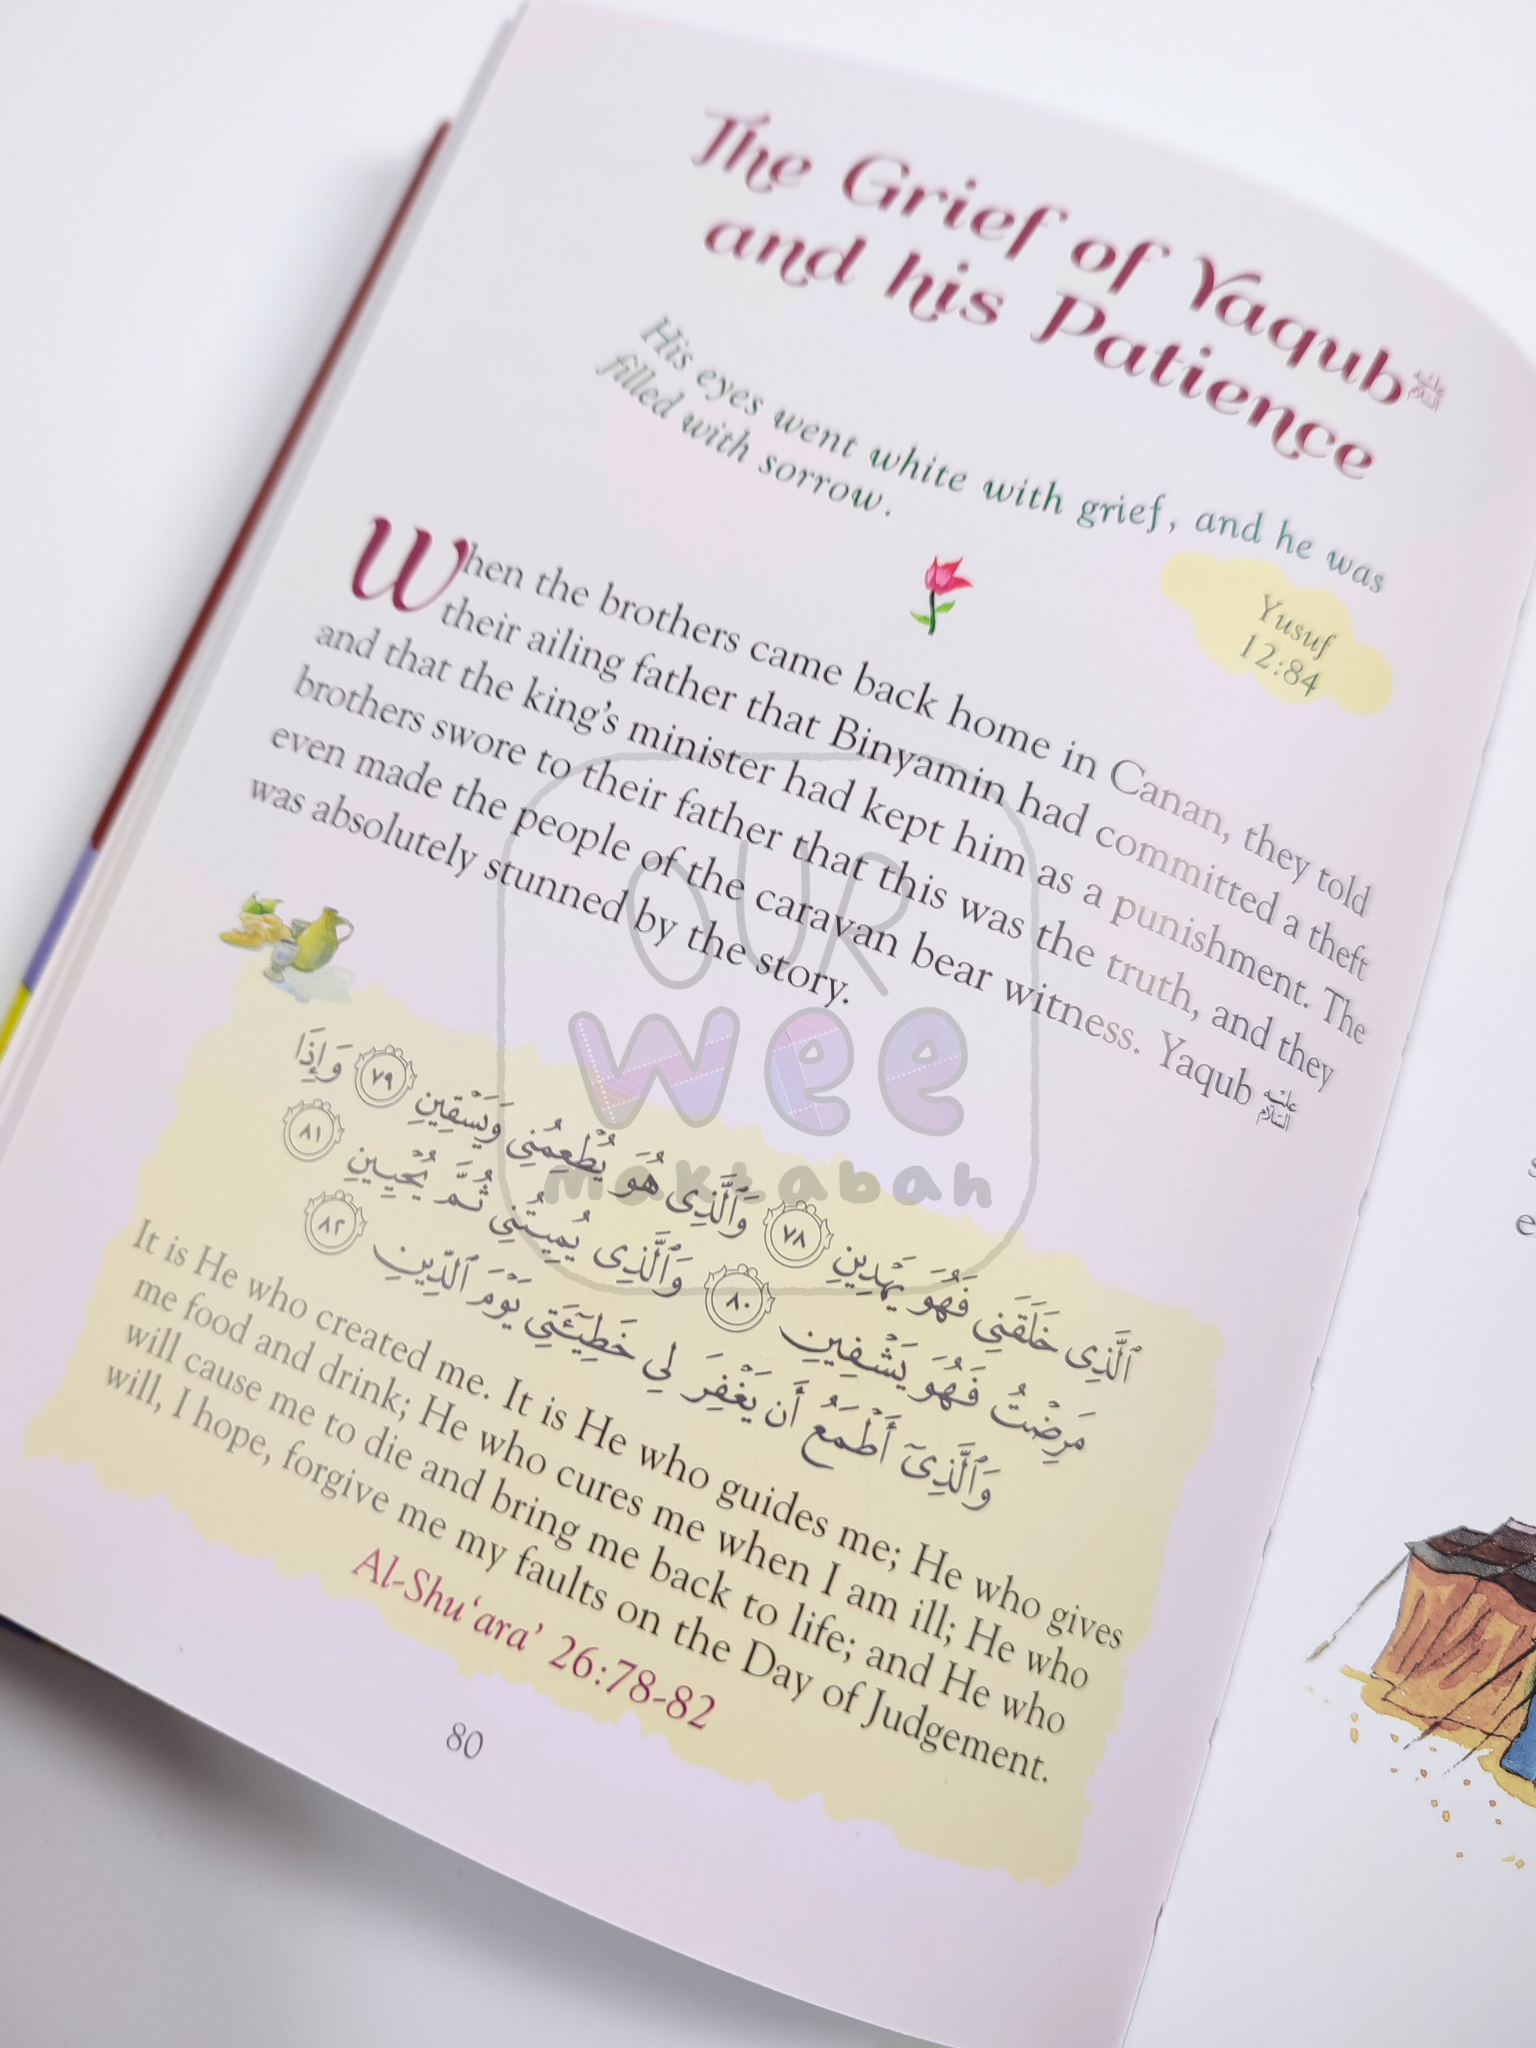 The Grief of Yaqub عليه السلام
and his Patience
His eyes went white with grief, and he was
filled with sorrow.
Yusuf
12:84
When the brothers came back home in Canan, they told
their ailing father that Binyamin had committed a theft
and that the king's minister had kept him as a punishment. The
brothers swore to their father that this was the truth, and they
even made the people of the caravan bear witness. Yaqub عليه السلام
was absolutely stunned by the story.
OUR
wee
maktabah
ٱلَّذِى خَلَقَنِى فَهُوَ يَهْدِينِ ٧٨ وَٱلَّذِى هُوَ يُطْعِمُنِى وَيَسْقِينِ ٧٩ وَإِذَا
مَرِضْتُ فَهُوَ يَشْفِينِ ٨٠ وَٱلَّذِى يُمِيتُنِى ثُمَّ يُحْيِينِ ٨١
وَٱلَّذِىٓ أَطْمَعُ أَن يَغْفِرَ لِى خَطِيٓـَٔتِى يَوْمَ ٱلدِّينِ ٨٢
It is He who created me. It is He who guides me; He who gives
me food and drink; He who cures me when I am ill; He who
will cause me to die and bring me back to life; and He who
will, I hope, forgive me my faults on the Day of Judgement.
Al-Shu‘ara’ 26:78-82
80